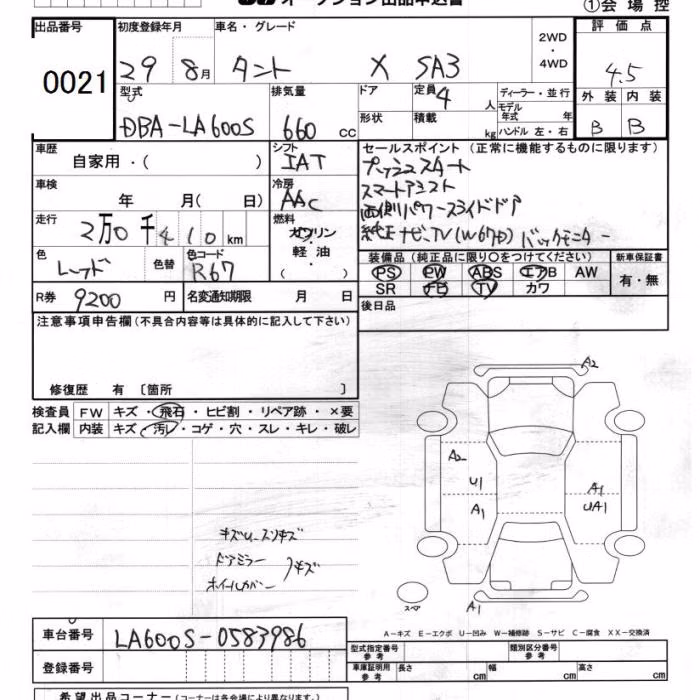 オークション出品申込書 ①会場控
出品番号 初度登録年月 車名・グレード 2WD・4WD 評価点
0021 29 8月 タント X SA3 4.5
型式 排気量 ドア 定員 4人 ディーラー・並行 外装 内装
DBA-LA600S 660cc 形状 積載 kg モデル年式 年 ハンドル 左・右 B B
車歴 自家用・( ) シフト IAT セールスポイント(正常に機能するものに限ります)
プッシュスタート
スマートアシスト
車検 年 月( 日) 冷房 AAC
両側パワースライドドア
走行 2万0千410km 燃料 ガソリン・軽油・( )
純正ナビ、TV(W67D) バックモニター
色 レッド 色替 色コード R67 装備品(純正品に限り○をつけてください) 新車保証書
PS PW ABS エアB AW 有・無
SR ナビ TV カワ
R券 9200円 名変通知期限 月 日 後日品
注意事項申告欄(不具合内容等は具体的に記入して下さい)
修復歴 有〔箇所 〕
検査員 FW キズ・飛石・ヒビ割・リペア跡・×要
記入欄 内装 キズ・汚レ・コゲ・穴・スレ・キレ・破レ
A2
A2
U1
A1
A1
UA1
キズU.スリキズ
ドアミラー
ホイールカバー キズ
スペア A1
A-キズ E-エクボ U-凹み W-補修跡 S-サビ C-腐食 XX-交換済
車台番号 LA600S-0583986
登録番号
型式指定番号 参考 類別区分番号 参考
車庫証明用 参考 長さ cm 幅 cm 高さ cm
希望出品コーナー(コーナーは各会場により異なります。)